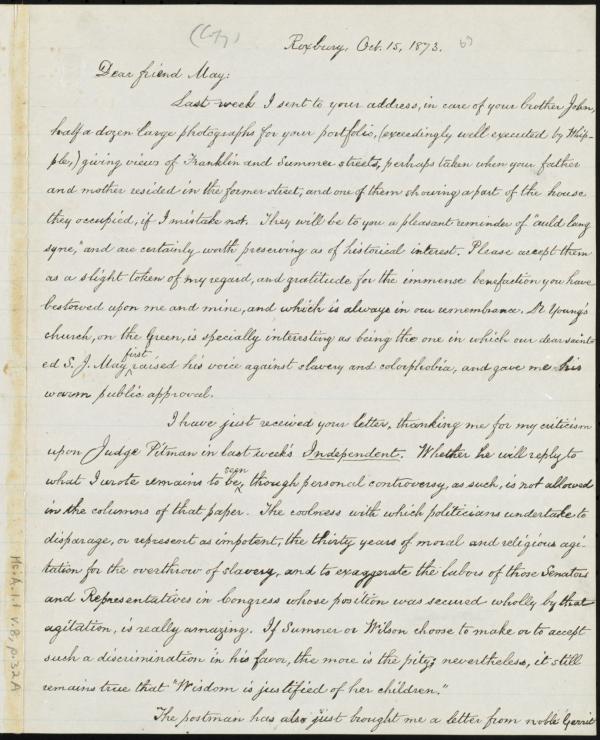 (Copy)
Roxbury, Oct. 15, 1873.
Dear friend May:
Last week I sent to your address, in care of your brother John,
half a dozen large photographs for your portfolio, (exceedingly well executed by Whip-
ple,) giving views of Franklin and Summer streets, perhaps taken when your father
and mother resided in the former street, and one of them showing a part of the house
they occupied, if I mistake not. They will be to you a pleasant reminder of "auld lang
syne," and are certainly worth preserving as of historical interest. Please accept them
as a slight token of my regard, and gratitude for the immense benefaction you have
bestowed upon me and mine, and which is always in our remembrance. Dr Young's
church, on the Green, is specially interesting as being the one in which our dear saint-
ed S. J. May first raised his voice against slavery and colorphobia, and gave me his
warm public approval.
I have just received your letter, thanking me for my criticism
upon Judge Pitman in last week's Independent. Whether he will reply to
what I wrote remains to be seen, though personal controversy, as such, is not allowed
in the columns of that paper. The coolness with which politicians undertake to
disparage, or represent as impotent, the thirty years of moral and religious agi-
tation for the overthrow of slavery, and to exaggerate the labors of those Senators
and Representatives in Congress whose position was secured wholly by that
agitation, is really amazing. If Sumner or Wilson choose to make or to accept
such a discrimination in his favor, the more is the pity; nevertheless, it still
remains true that "Wisdom is justified of her children."
The postman has also just brought me a letter from noble Gerrit
Ms. A. 1.1 v. 8, p. 32A